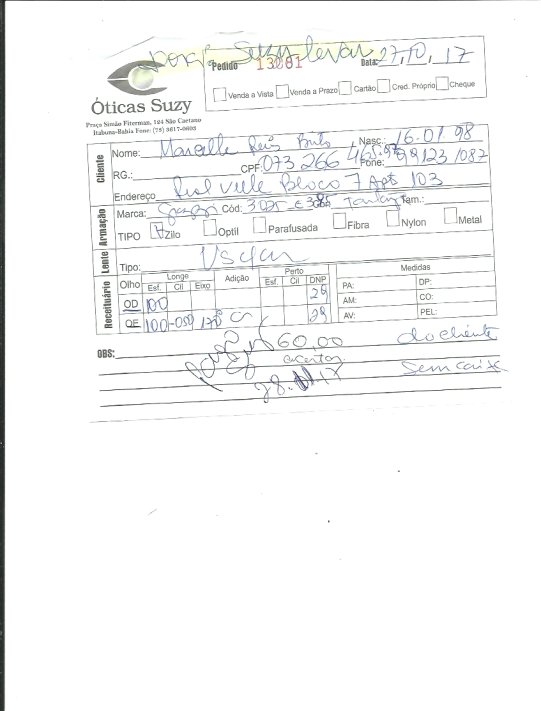 Suzy levar
Pedido 13081 Data: 27,10,17
Venda a Vista Venda a Prazo Cartão Cred. Próprio Cheque
Óticas Suzy
Praça Simão Fiterman, 124 São Caetano
Itabuna-Bahia Fone: (73) 3617-0603
Cliente
Nome: Marcelle Reis Brito Nasc.: 16.01.98
RG.: CPF: 073 266 465.97 Fone: 99123 1087
Endereço Bloco 7 Apt 103
Armação
Marca: Cód: 3025 Tam.:
TIPO Zilo Optil Parafusada Fibra Nylon Metal
Lente
Tipo:
Receituário
Olho Longe Adição Perto DNP Medidas
Esf. Cil Eixo Esf. Cil
PA: DP:
OD 100 29 AM: CO:
OE 100-050 170° 29 AV: PEL:
OBS: 60,00 do cliente
28.11.17 Sem caixa